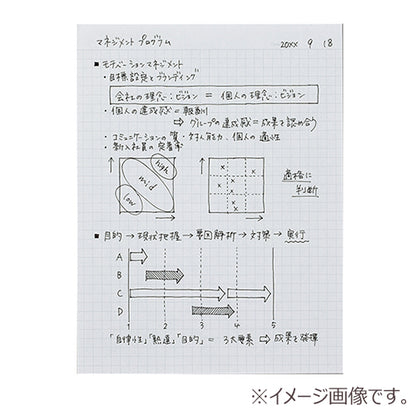 マネジメント プログラム
20XX 9 18
■ モチベーションマネジメント
・目標設定とブランディング
会社の理念：ビジョン ＝ 個人の理念：ビジョン
・個人の達成感 ＝ 報酬
⇨ グループの達成感＝成果を認め合う
・コミュニケーションの質・対人能力、個人の適性
・新入社員の定着率
high
mid
low
x x x x x x
適格に
判断
■ 目的 → 現状把握 → 要因解析 → 対策 → 実行
A
B
C
D
1 2 3 4 5
「自律性」「熱意」「目的」＝ 3大要素 ⇨ 成果を発揮
※イメージ画像です。